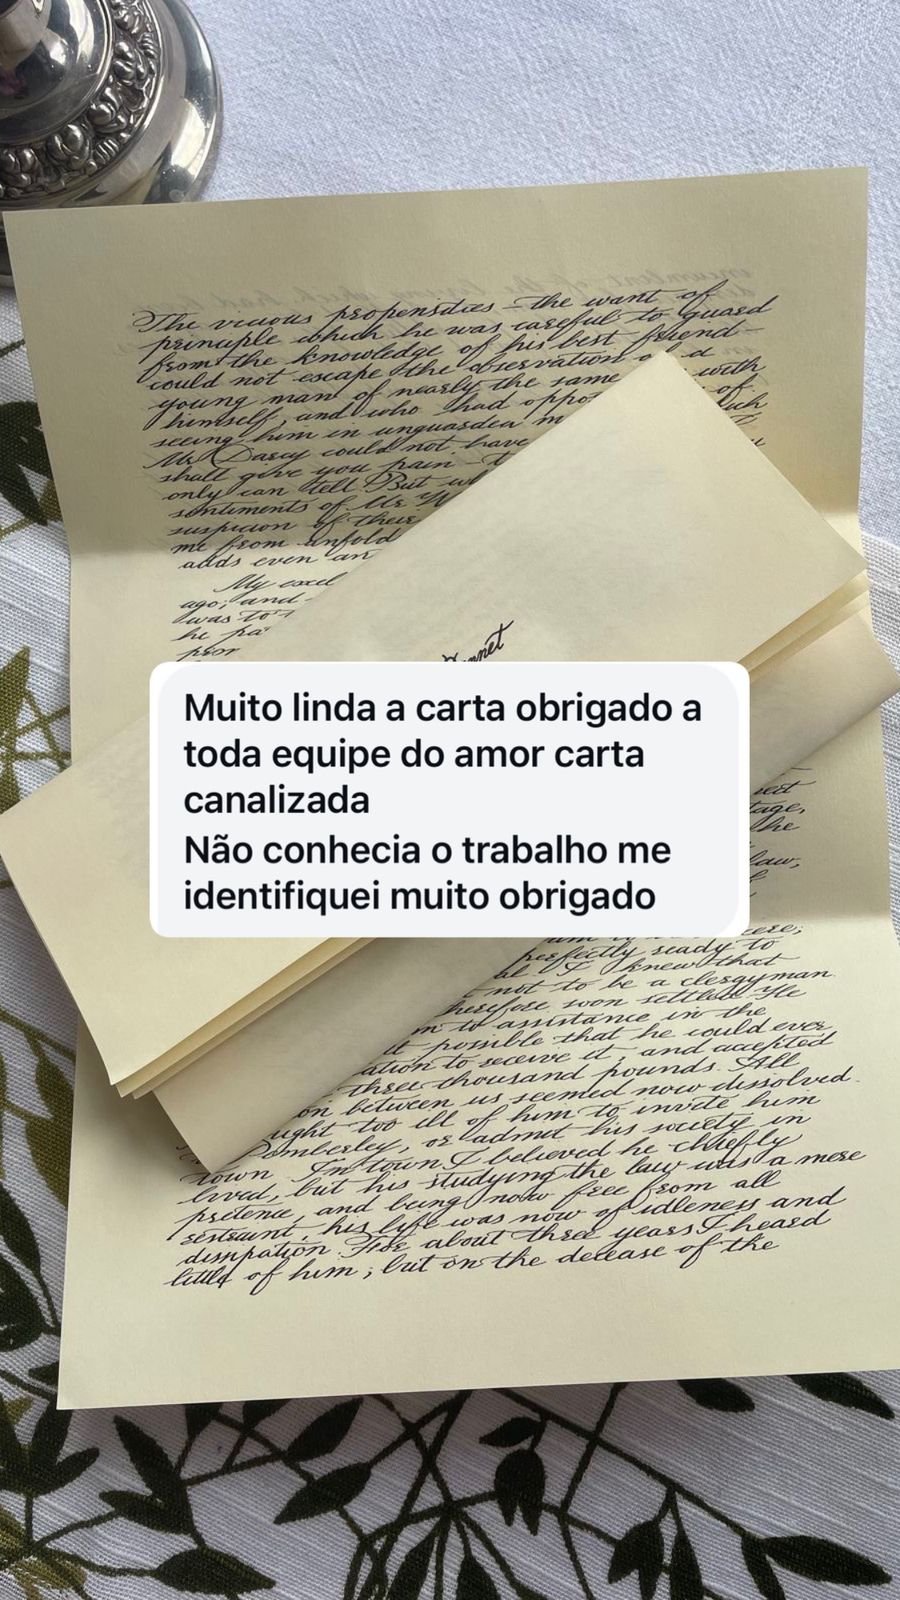 The vicious propensities – the want of
principle which he was careful to guard
from the knowledge of his best friend –
could not escape the observation of a
young man of nearly the same with
himself, and who had oppor of
seeing him in unguarded m such
Mr Darcy could not have
shall give you pain – t
only can tell. But wh
sentiments of Mr W
suspicion of their
me from unfold
adds even an
My excel
ago; and
was to
he pa
Bennet
Muito linda a carta obrigado a
toda equipe do amor carta
canalizada
Não conhecia o trabalho me
identifiquei muito obrigado
tage,
he
law,
cere;
perfectly ready to
I knew that
not to be a clergyman.
herefore soon settled. He
m to assistance in the
it possible that he could ever
ation to receive it, and accepted
three thousand pounds. All
on between us seemed now dissolved.
ught too ill of him to invite him
Pemberley, or admit his society in
town. In town I believed he chiefly
lived, but his studying the law was a mere
pretence, and being now free from all
restraint, his life was now of idleness and
dissipation. For about three years I heard
little of him; but on the decease of the